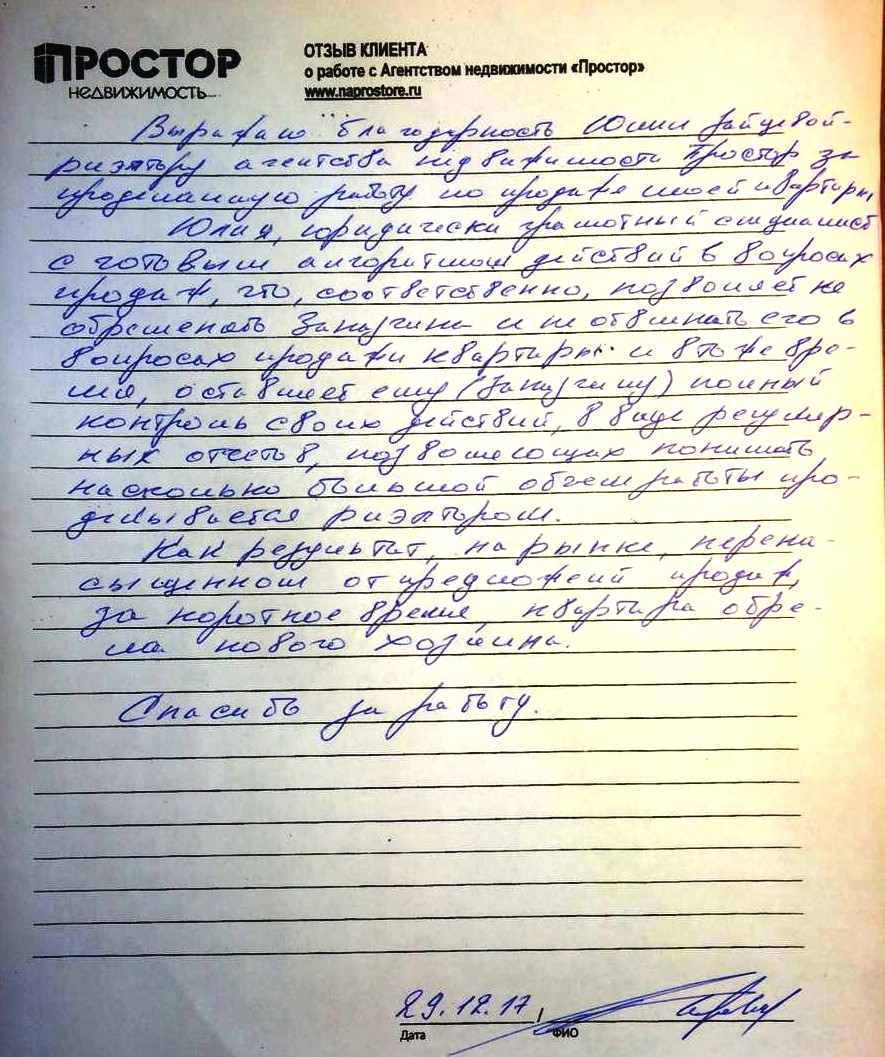 ПРОСТОР
НЕДВИЖИМОСТЬ
ОТЗЫВ КЛИЕНТА
о работе с Агентством недвижимости «Простор»
www.naprostore.ru
Выражаю благодарность Юлии Зайцевой-
риэлтору агентства недвижимости Простор за
проделанную работу по продаже моей квартиры
Юлия, юридически грамотный специалист
с готовым алгоритмом действий в вопросах
продаж, что, соответственно, позволяет не
обременять Заказчика и не отвлекать его в
вопросах продажи квартиры и в то же вре-
мя, оставляет ему (Заказчику) полный
контроль своих действий, в виде регуляр-
ных отчетов, позволяющих понимать
насколько большой объем работы про-
делывается риэлтором.
Как результат, на рынке, перена-
сыщенном от предложений продаж,
за короткое время, квартира обре-
ла нового хозяина.
Спасибо за работу.
29.12.17 /
Дата
ФИО